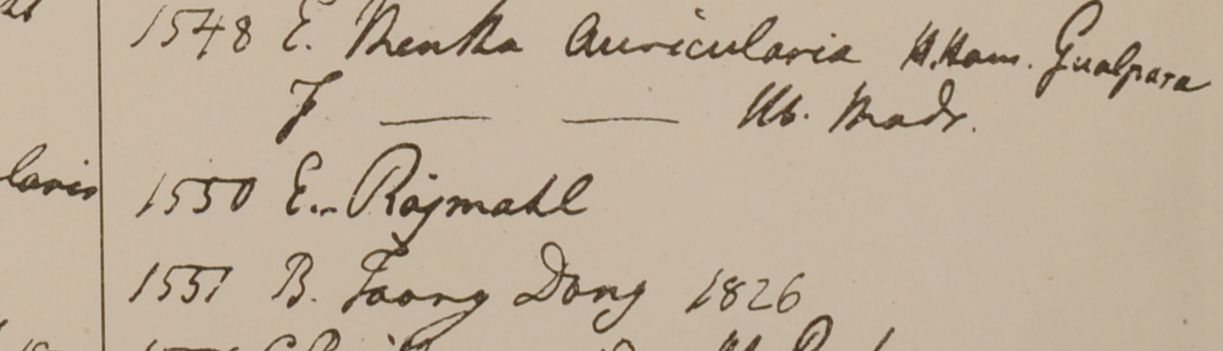 1548 E. Mentha auricularia H. Ham. Gualpara
F — — Hb. Madr.
laris 1550 E. Rajmahl
1551 B. Taong Dong 1826